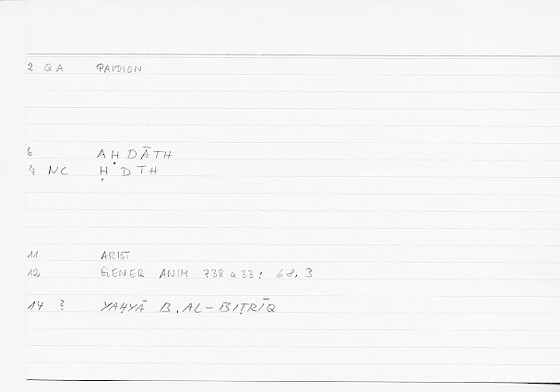 2 QA PAIDION
6 AḤDĀTH
4 NC ḤDTH
11 ARIST
12 GENER ANIM 738 a 33 : 68, 3
14 ? YAḤYĀ B. AL-BIṬRĪQ